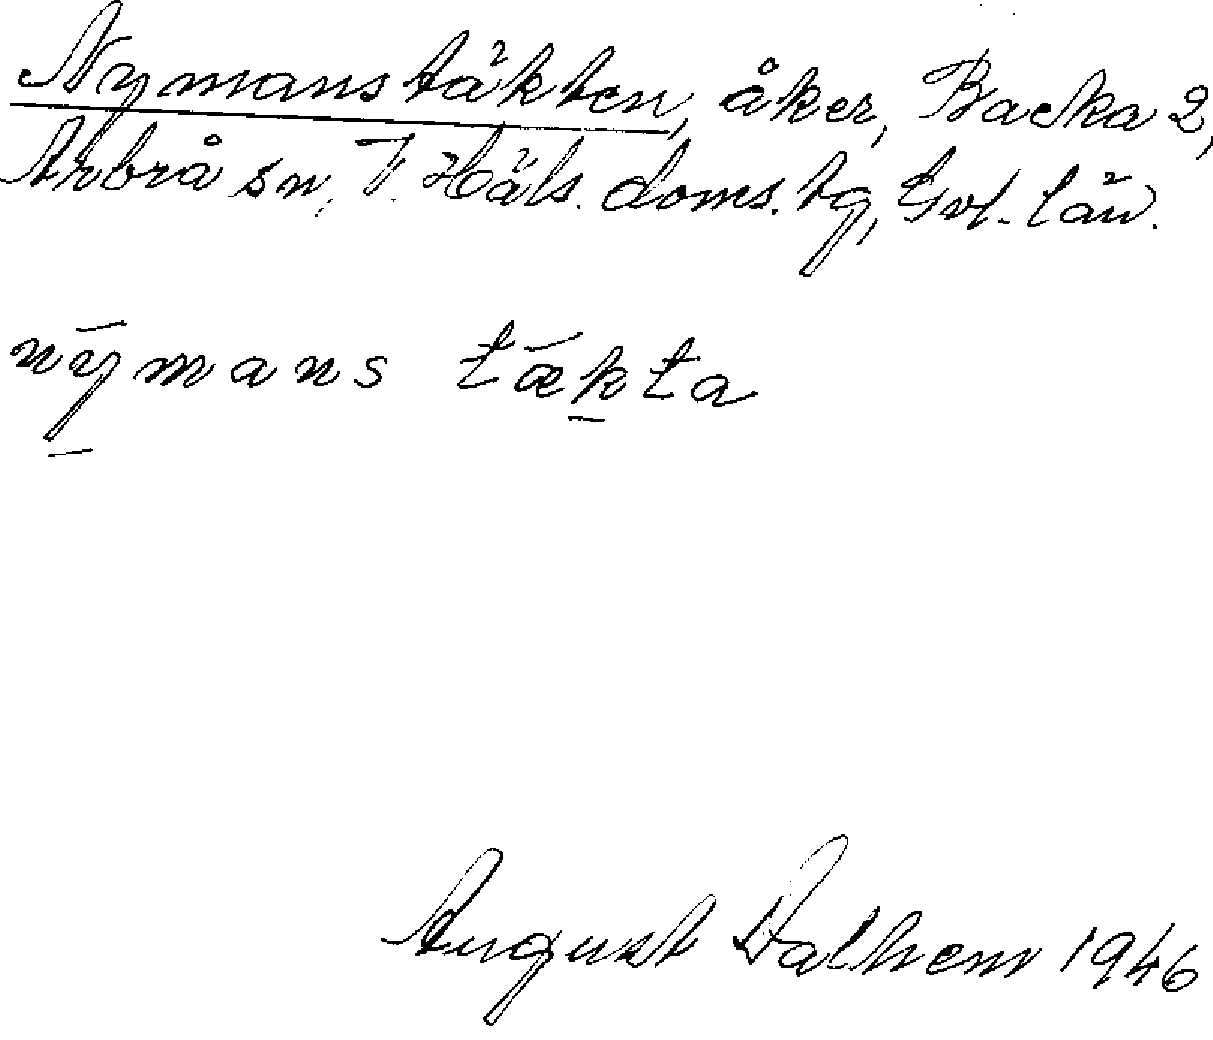 Nymanstäkten, åker, Backa 2,
Arbrå sn, V. Häls. doms. tg, Gvl. län.
nymans tækta
August Dalhem 1946